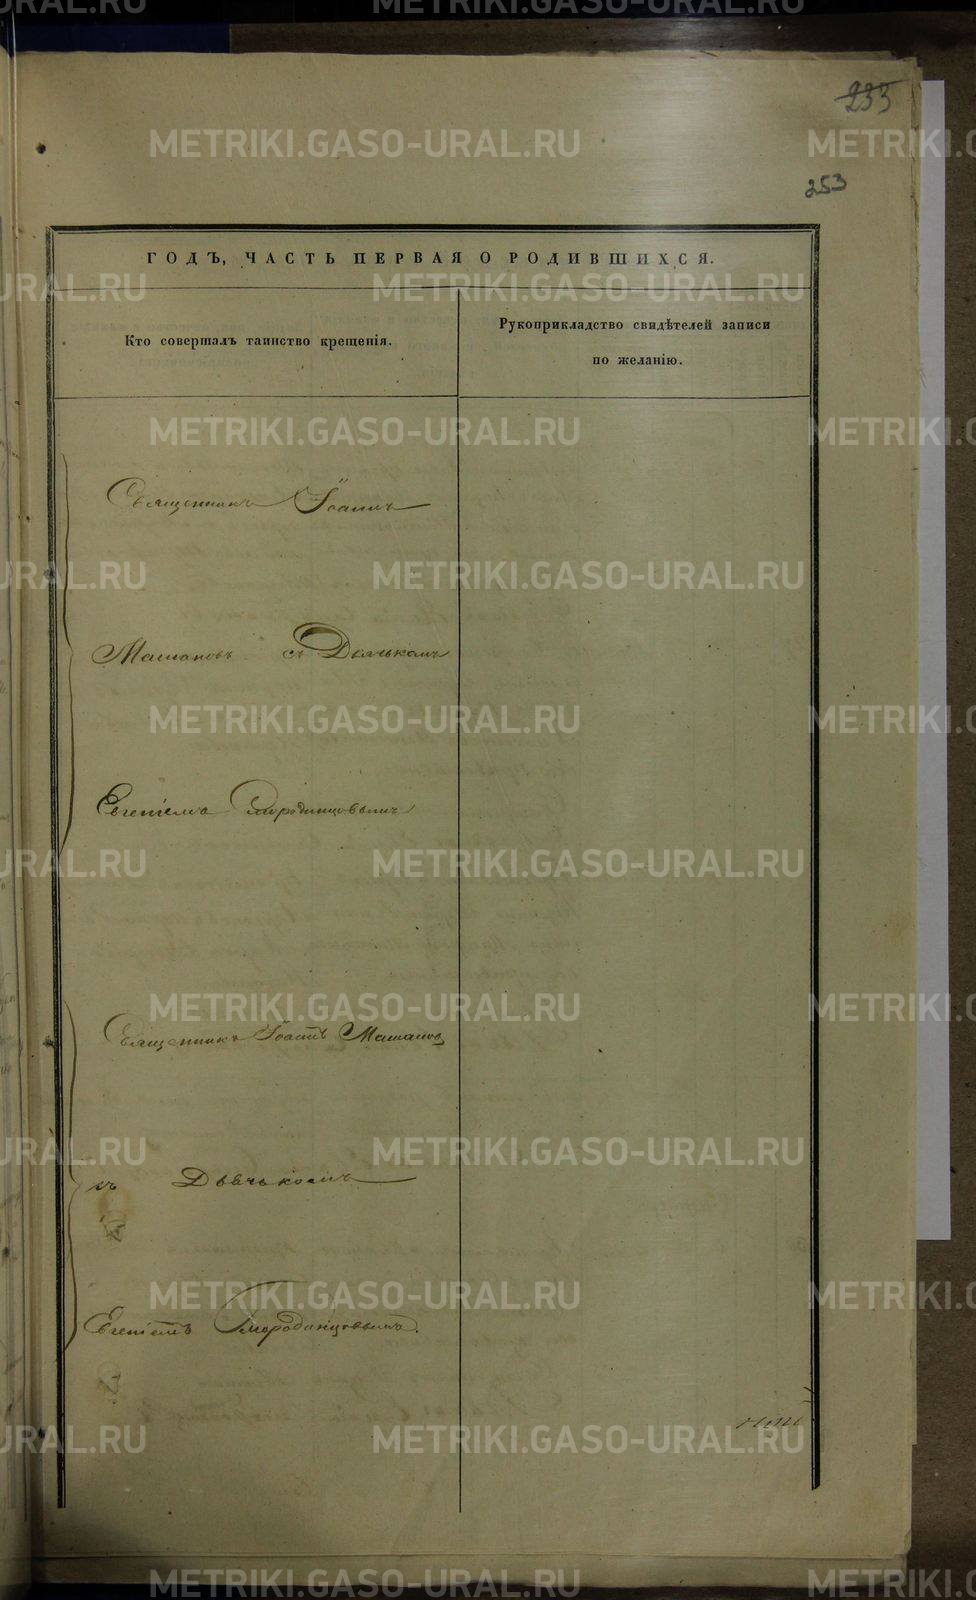 233
253
ГОДЪ, ЧАСТЬ ПЕРВАЯ О РОДИВШИХСЯ.
Кто совершалъ таинство крещенія.
Рукоприкладство свидѣтелей записи
по желанію.
Священникъ Іоаннъ
Машановъ съ Дьячькомъ
Евгеніемъ Смородинцовымъ
Священникъ Іоаннъ Машановъ
съ Дьячькомъ
Евгеніемъ Смородинцовымъ.
METRIKI.GASO-URAL.RU